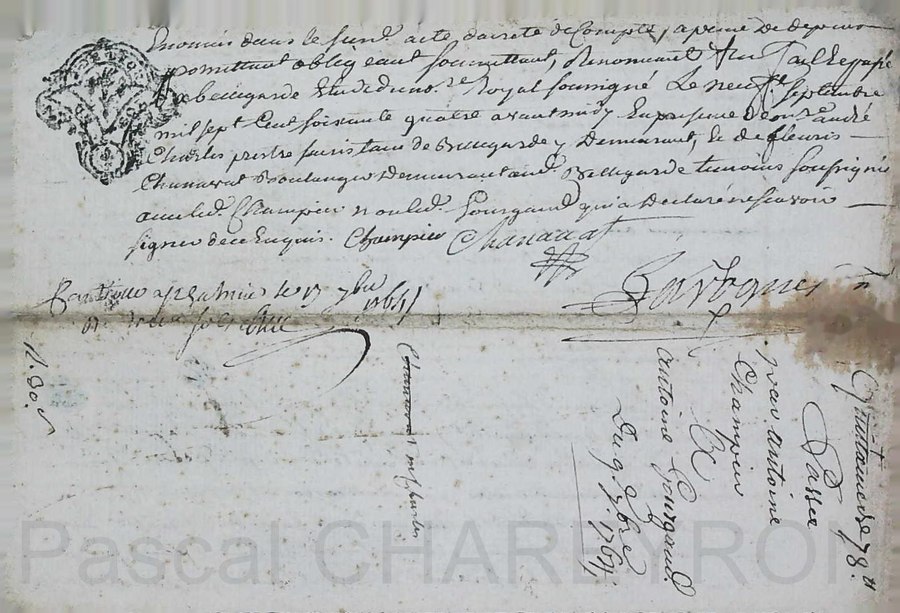 enonués dans le susd. acte darreté de Compte, a peine de depens
promettant oblig eant soumettant, Renonceant fait & passé
a bellegarde Etude du no.re Royal soussigné Le neuf.e septembre
mil sept Cent soixante quatre avant midy En presence de m.re andré
Charles prestre sacristain de Bellegarde y Demeurant, & de fleuris
Chanavat Boulanger Demeurant aud. Bellegarde temoins soussignés
avec led. Champier non led. Gourgaud qui a declaré ne sçavoir
signer de ce Enquis. Champier Chanavat
le 17 7bre 1764
Charles
N. 80.
Quittance de 78.tt
Passée
par antoine
Champier
A
antoine Gourgaud
Du 9. 7bre 1764
Pascal CHAREYRON